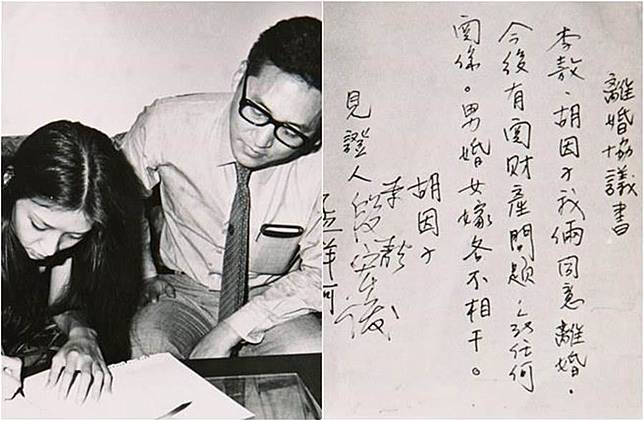 離婚協議書
李敖、胡因子我倆同意離婚。
今後有関財產問題任何
関係。男婚女嫁各不相干。
胡因子
李敖
見證人 段宏俊